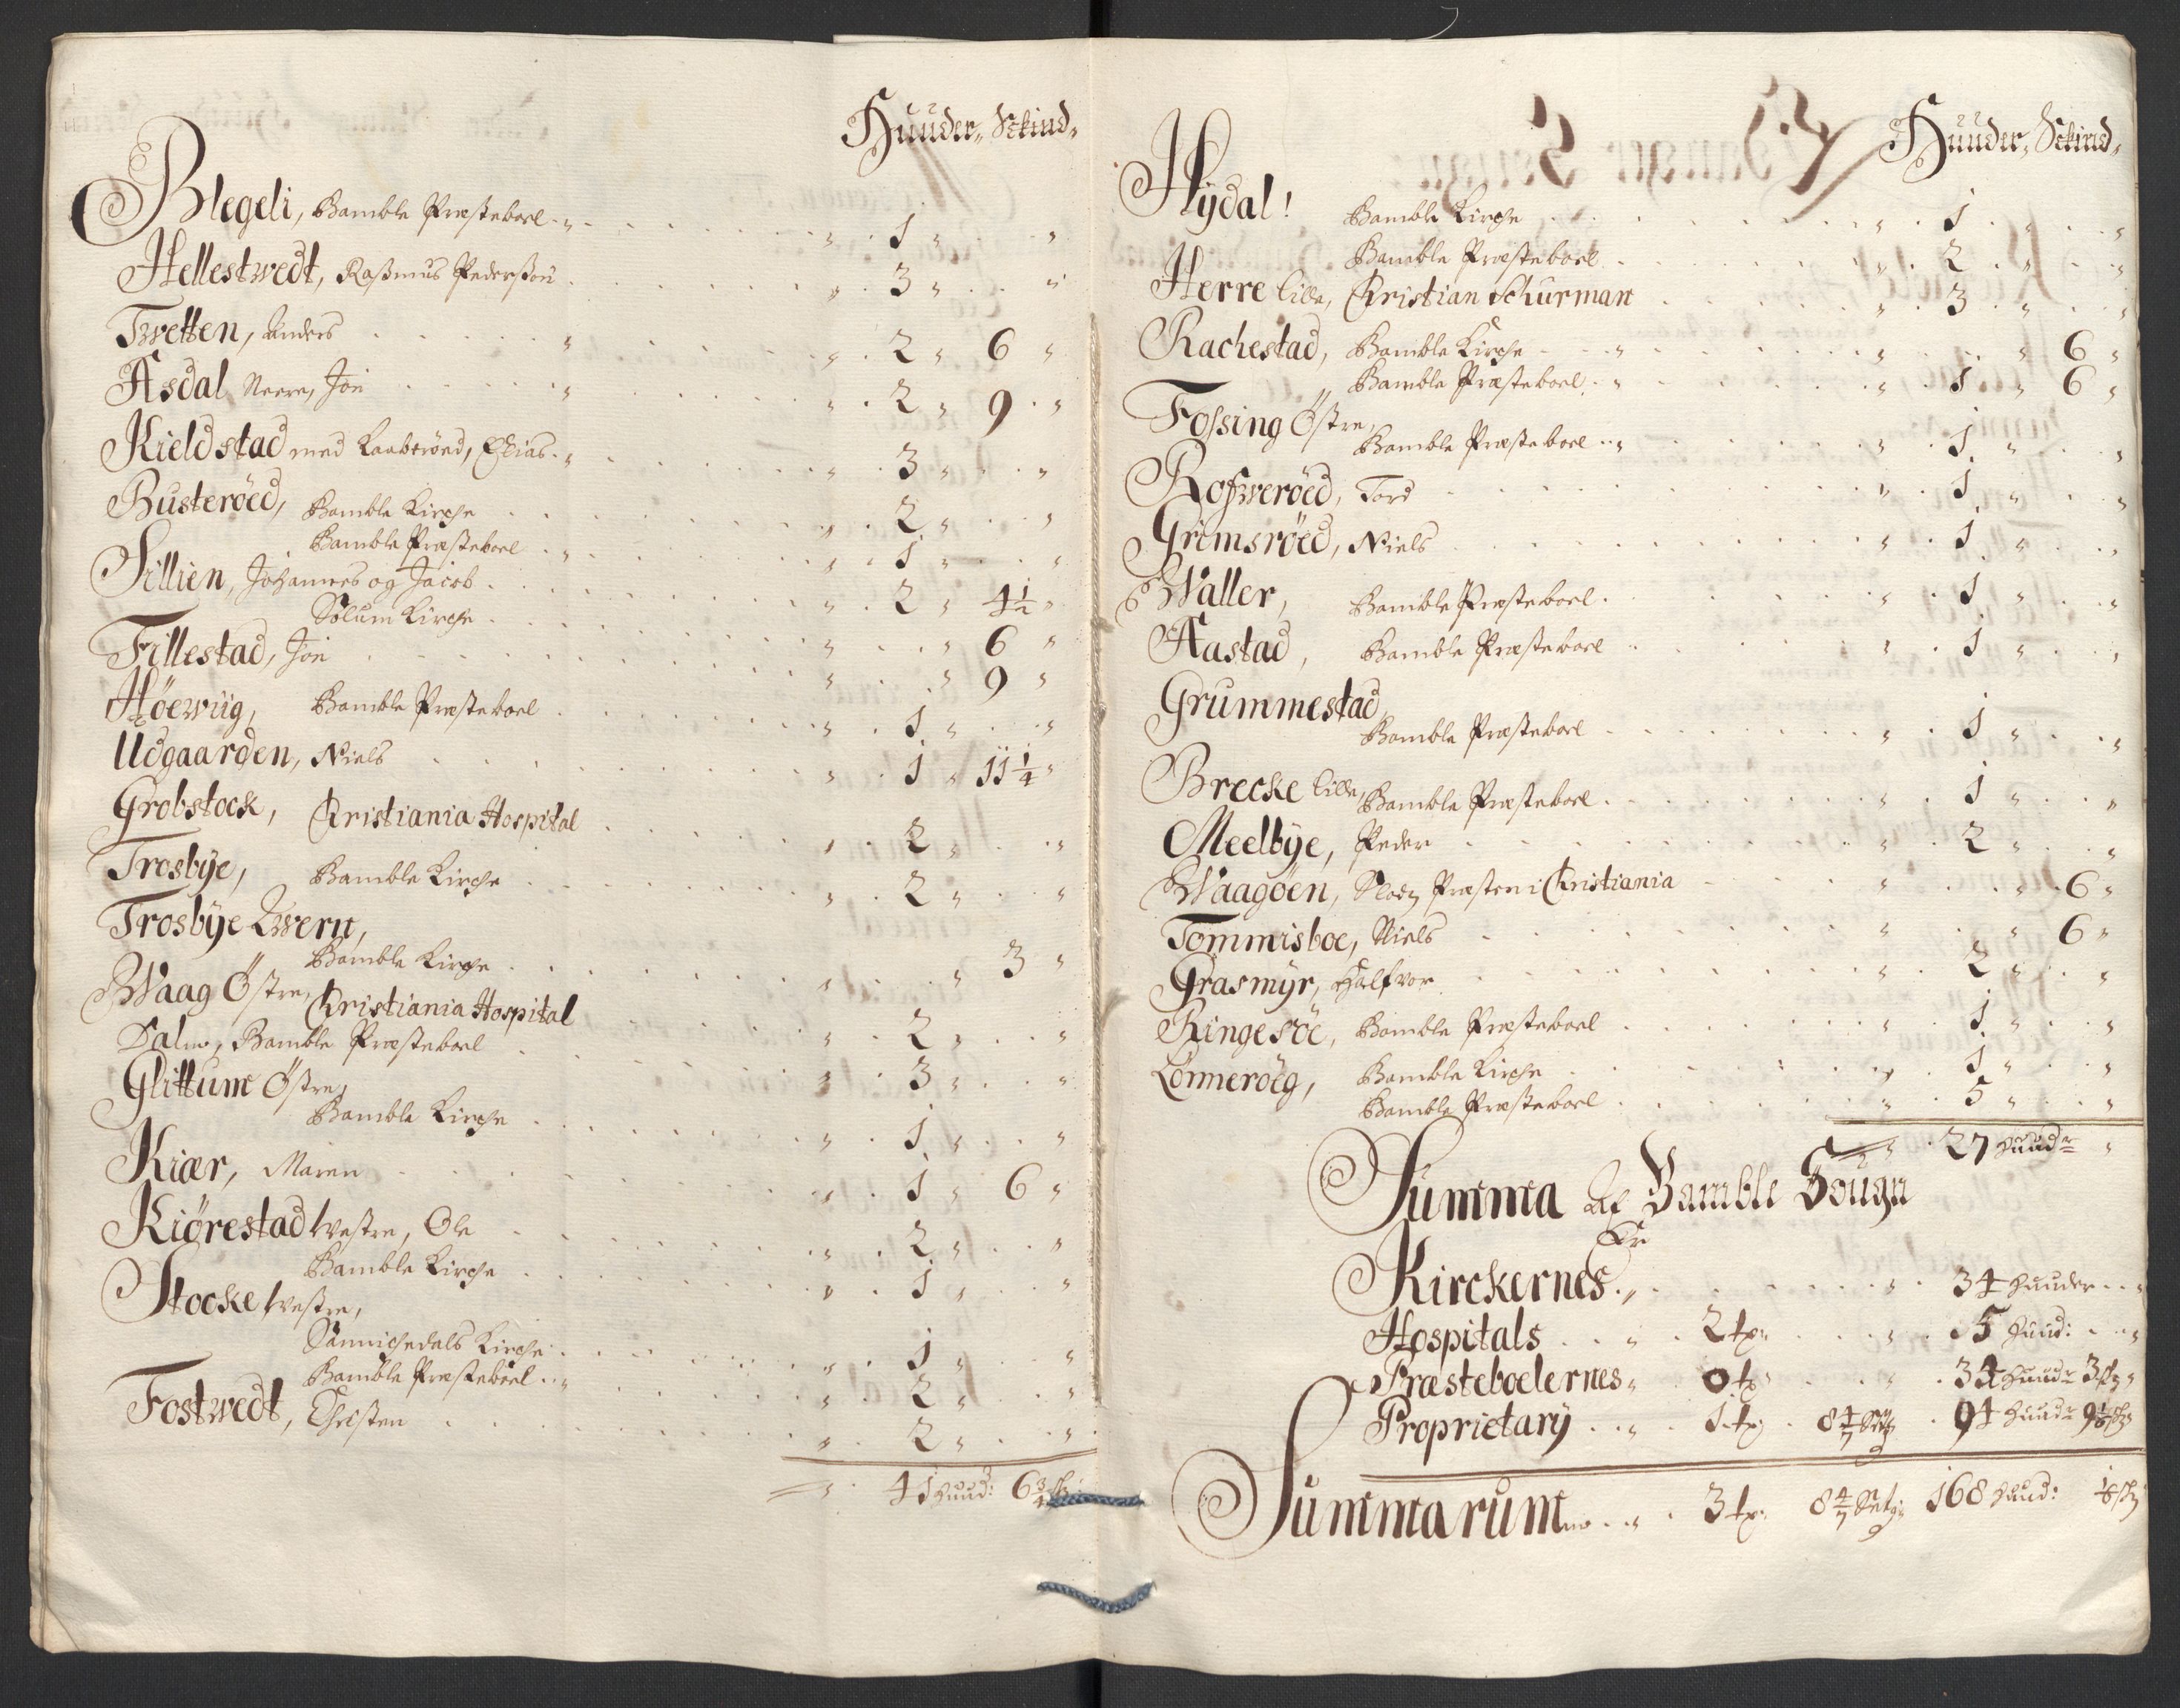 Huuder, Skind,
Blegeli, Bamble Præsteboel 1
Hellestwedt, Rasmus Pederssøn 3
Twetten, Anders 2 6
Aasdal Neere, Jon 2 9
Kieldstad med Raaberöed, Elias 3
Busteröed, Bamble Kirche 2
Bamble Præsteboel 1
Sillien, Johannes og Jacob 2 4 1/2
Solum Kirche 6
Fillestad, Jon 9
Höewiig, Bamble Præsteboel 1
Udgaarden, Niels 1 11 1/4
Grobstock, Christiania Hospital 2
Trosbÿe, Bamble Kirche 2
Trosbÿe Qwern,
Bamble Kirche 3
Waag Östre, Christiania Hospital 2
Dalen, Bamble Præsteboel 3
Glittum Östre,
Bamble Kirche 1
Kiær, Maren 1 6
Kiörestad westre, Ole 2
Bamble Kirche 1
Stocke westre,
Sannichedals Kirche 1
Bamble Præsteboel 2
Fostwedt, Christen 2
41 Huud: 6 3/4 sk
Huuder, Skind,
Hÿdal! Bamble Kirche 1
Bamble Præsteboel 2
Herre lille, Christian Schurman 3
Rachestad, Bamble Kirche 6
Bamble Præsteboel 1 6
Fossing Östre,
Bamble Præsteboel 1
Rosweröed, Tord 1
Grimsröed, Niels 1
Waller, Bamble Præsteboel 1
Aastad, Bamble Præsteboel 1
Grummestad,
Bamble Præsteboel 1
Brecke lille, Bamble Præsteboel 1
Meelbÿe, Peder 2
Waagöen, Slotz Præsten i Christiania 6
Tommisboe, Niels 6
Grasmÿr, Halfvor 2
Ringesöe, Bamble Præsteboel 1
Lönneröeg, Bamble Kirche 1
Bamble Præsteboel 5
27 Huudr
Summa Af Bamble Sougn
Er
Kirckernes 34 Huuder
Hospitals 2 tp: 5 Huud:
Præsteboelernes 0 tp: 34 Huudr 3 sk
Proprietarÿ 1 tp: 8 4/7 Setg 94 Huudr 9 1/8 sk
Summarum 3 tp: 8 4/7 Setg: 168 Huud: 1/8 sk